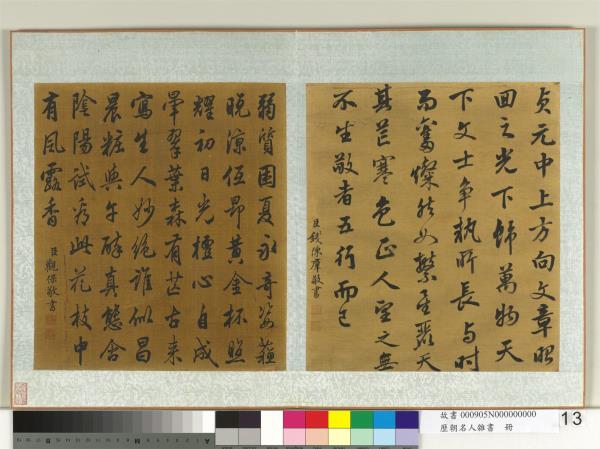 貞元中上方向文章昭
回之光下飾萬物天
下文士爭執所長與時
而奮燦然如繁星麗天
其芒寒色正人望之無
不生敬者五行而已
臣錢陳羣敬書
弱質困夏永奇姿蘇
曉涼低昂黃金杯照
耀初日光檀心自成
暈翠葉森有芒古來
寫生人妙絕誰似昌
晨粧與午醉真態含
陰陽試看此花枝中
有風露香
臣觀保敬書
故書 000905N000000000
歷朝名人雜書 冊
13